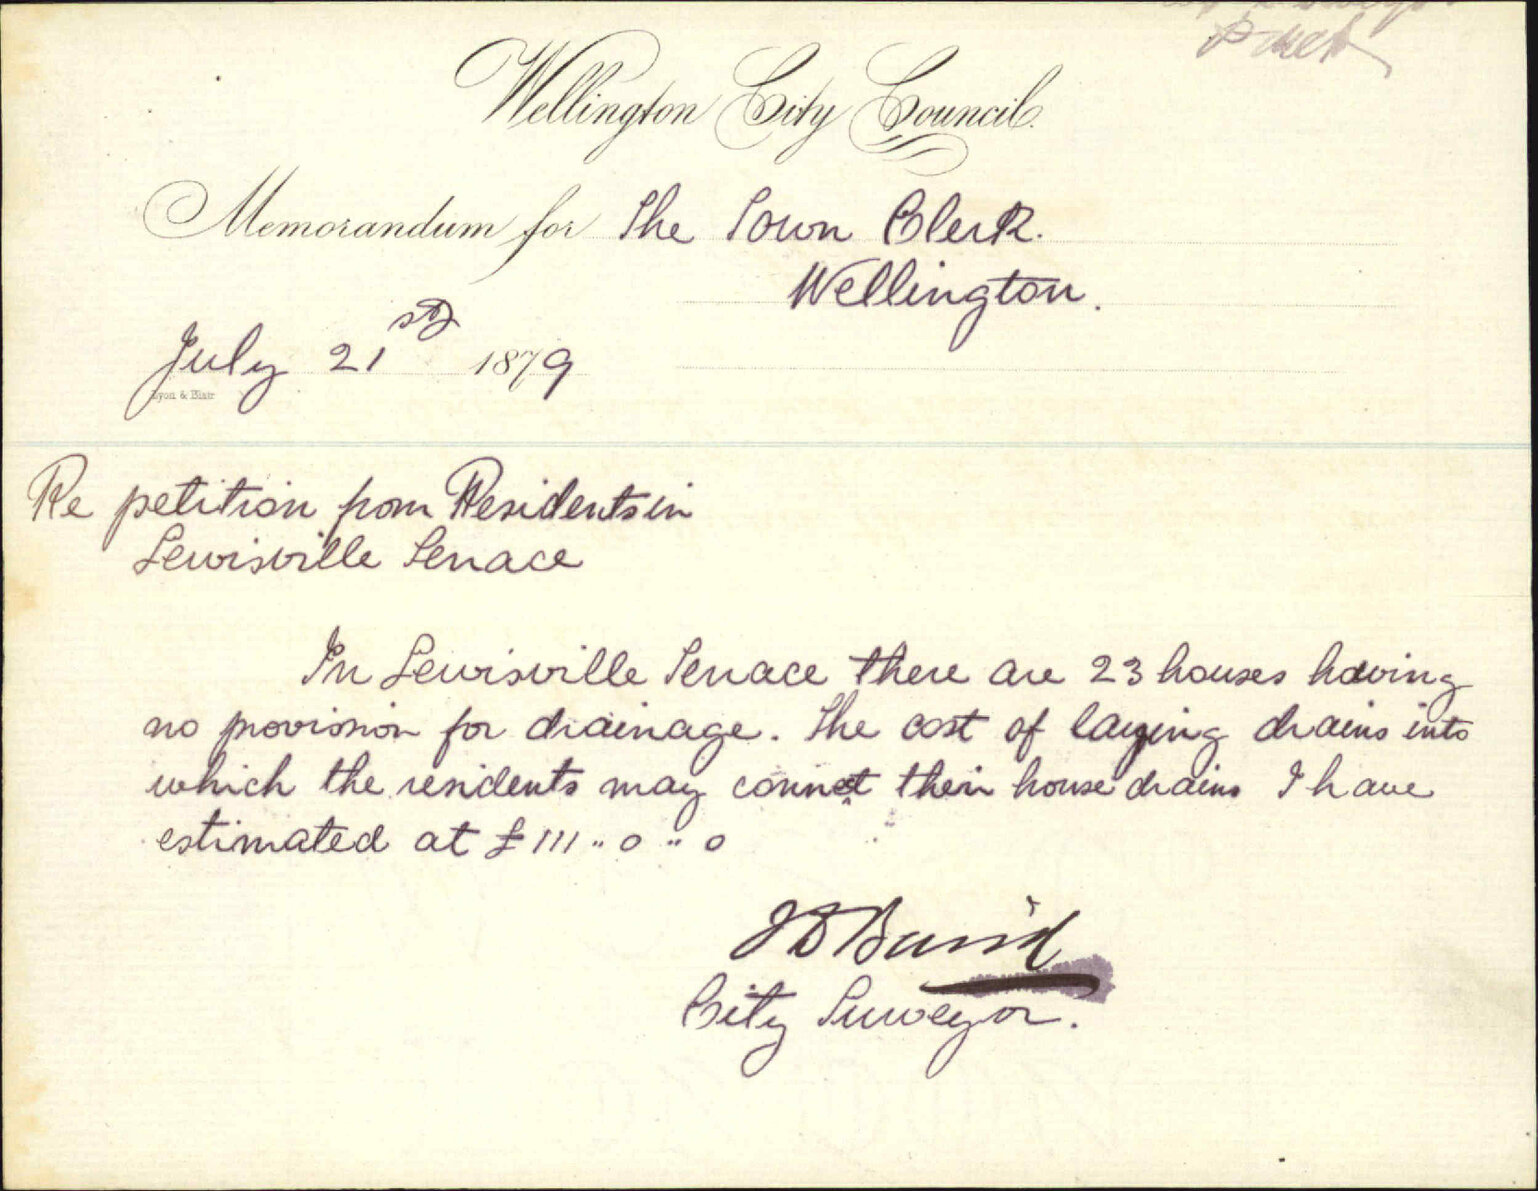 Wellington City Council.
Memorandum for The Town Clerk.
Wellington.
July 21st 1879
Lyon & Blair
Re petition from Residents in
Lewisville Terrace
In Lewisville Terrace there are 23 houses having
no provision for drainage. The cost of laying drains into
which the residents may connect their house drains I have
estimated at £111 " 0 " 0
J D Baird
City Surveyor.